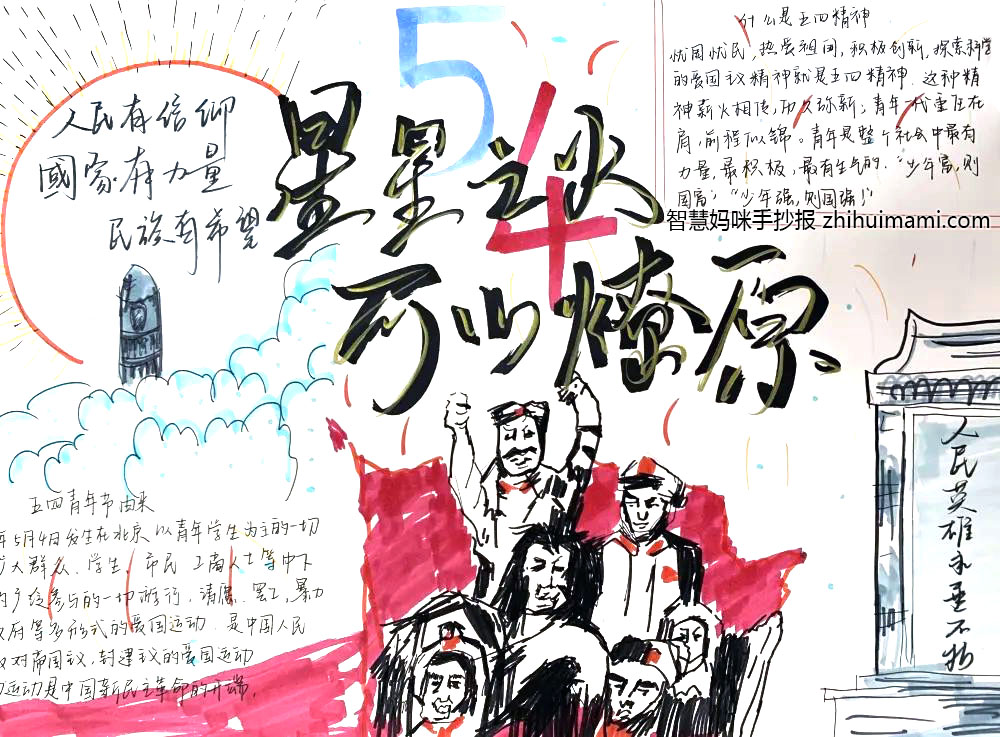 5
4
星星之火
可以燎原
人民有信仰
國家有力量
民族有希望
什么是五四精神
忧国忧民,热爱祖国,积极创新,探索科学
的爱国议精神就是五四精神.这种精
神薪火相传,历久弥新;青年一代重任在
肩,前程似锦。青年是整个社会中最有
力量,最积极,最有生气的."少年富,则
国富;""少年强,则国强!"
智慧妈咪手抄报 zhihuimami.com
五四青年节由来
年5月4日发生在北京以青年学生为主的一切
大群众、学生、市民 工商人士等中下
参与的一切游行,请愿、罢工,暴力
政府等多形式的爱国运动.是中国人民
对帝国议,封建议的爱国运动
运动是中国新民主革命的开端.
人民英雄永垂不朽